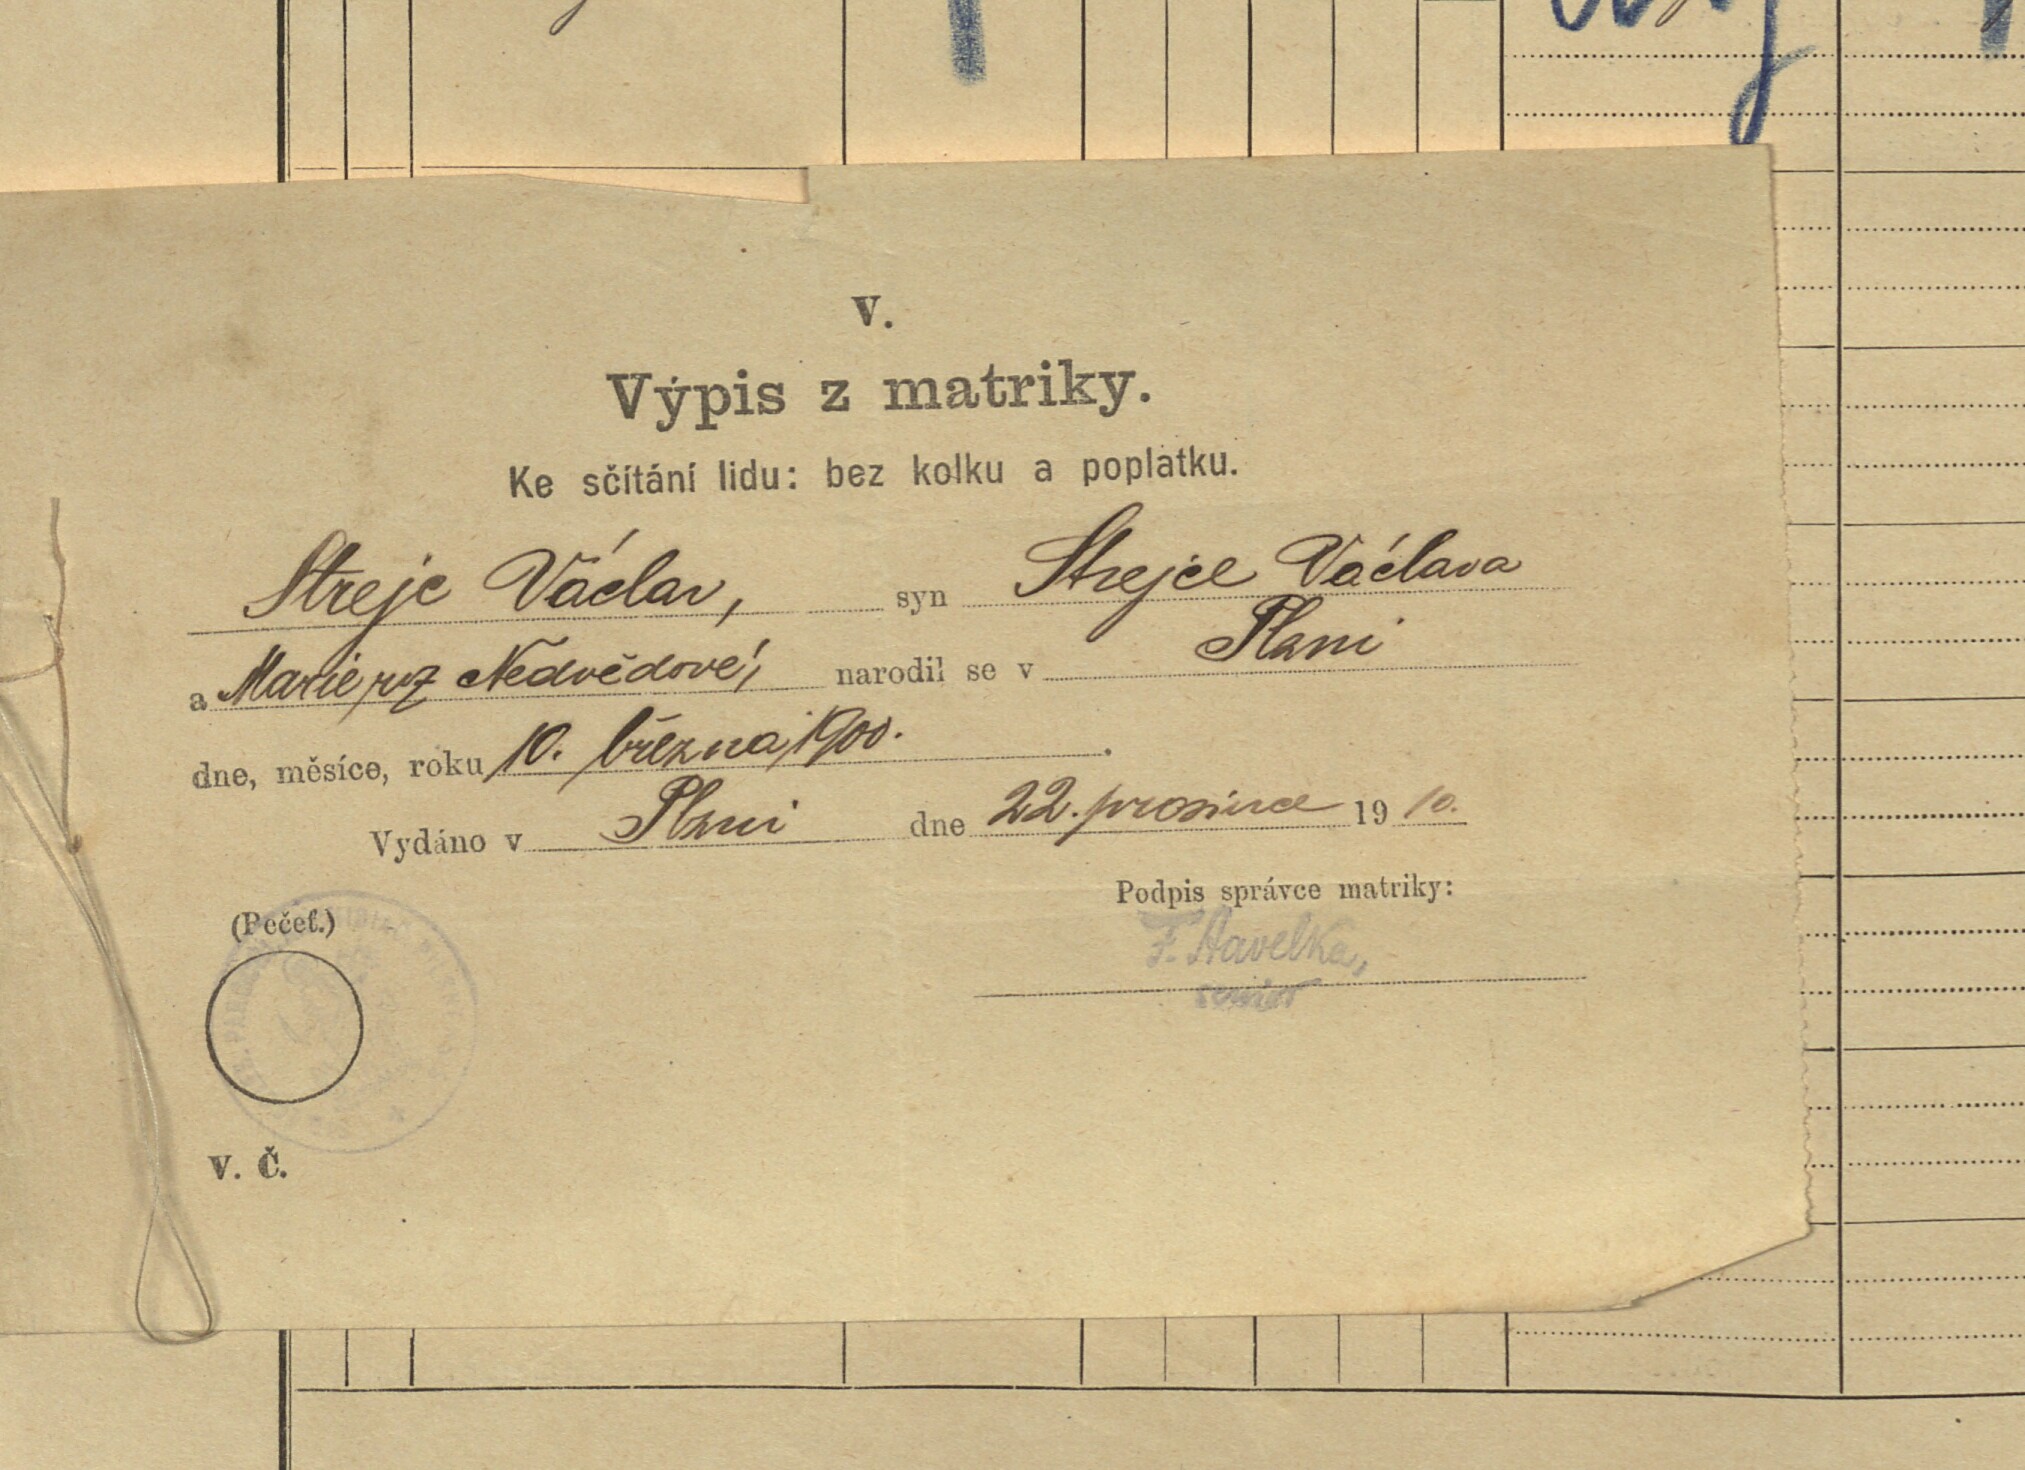 V.
Výpis z matriky.
Ke sčítání lidu: bez kolku a poplatku.
Strejc Václav, syn Strejce Václava
a Marie roz Nedvědové, narodil se v Plzni
dne, měsíce, roku 10. března 1900.
Vydáno v Plzni dne 22. prosince 1910.
Podpis správce matriky:
(Pečeť.)
F. Havelka,
senior
V. Č.